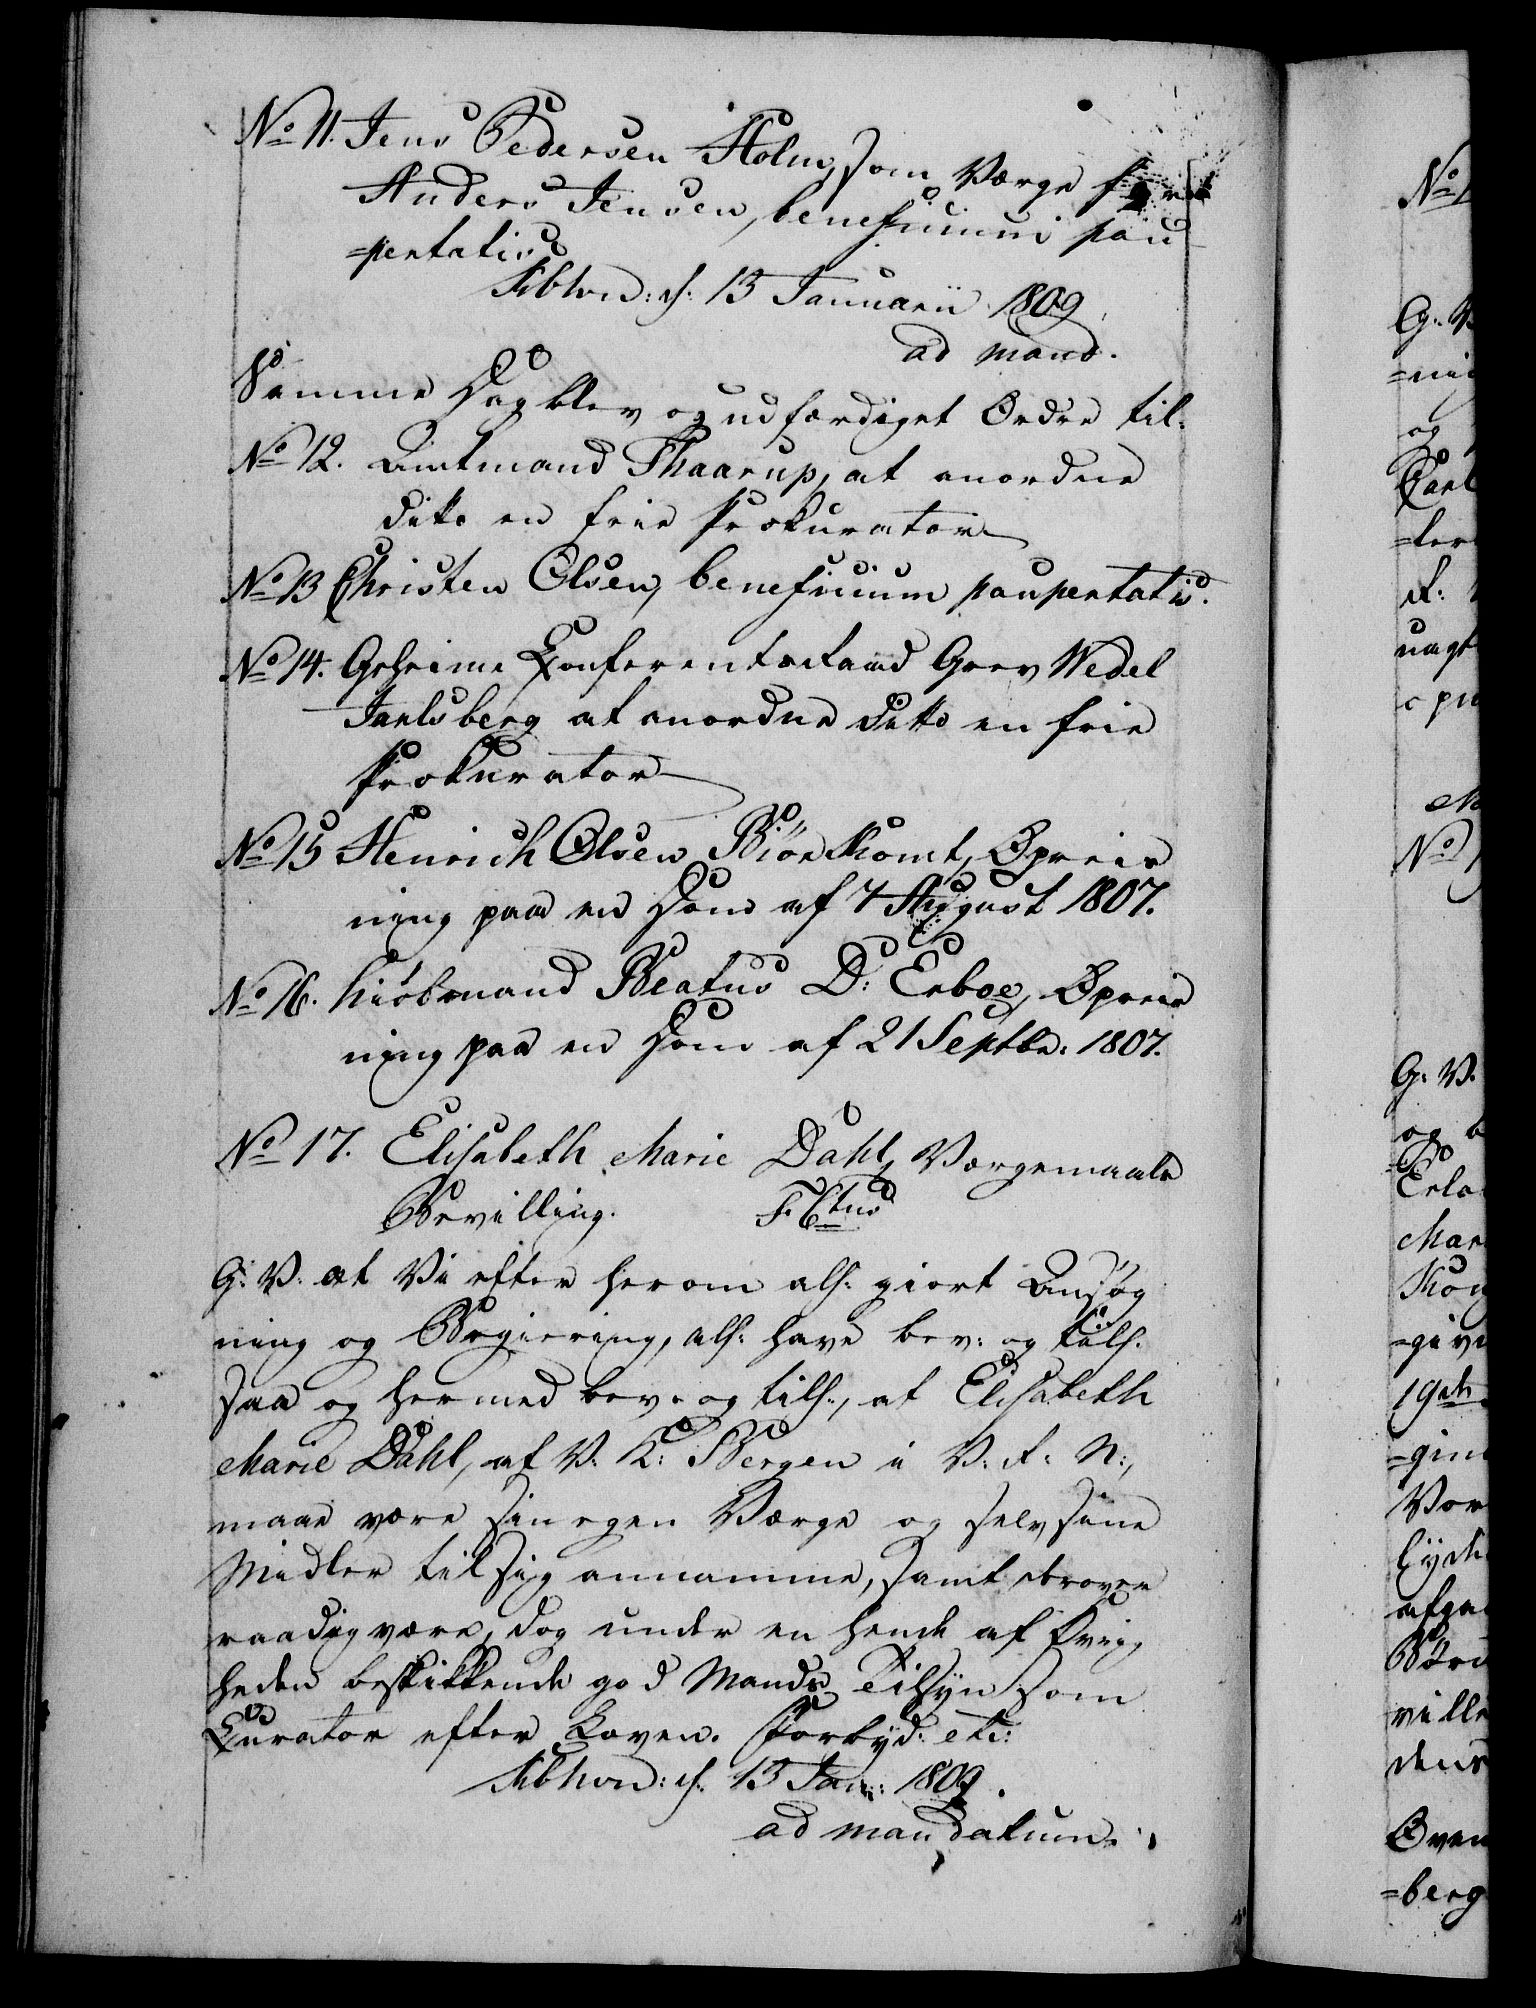 No 11. Jens Pedersen Holm, som Værge for
Anders Jensen, beneficium pau
=pertatis
Kbhvn: d. 13 Januarii 1809.
ad mand.
Samme Dag blev og udfærdiget Ordre til:
No 12. Amtmand Thaarup, at anordne
ditto en frie Prokurator
No 13 Christen Olsen, beneficium paupertatis.
No 14. Geheime Konferentsraad Grev Wedel
Jarlsberg at anordne ditto en frie
Prokurator
No 15 Henrich Olsen Biørkomt, Opreis
ning paa en Dom af 7 August 1807.
No 16. Kiöbmand Beatus D: Erboe, Opreis
ning paa en Dom af 21 Septbr: 1807.
No 17. Elisabeth Marie Dahl, Værgemaals
Bevilling. F. Ctus
G: V: at Vi efter herom als: giort Ansøg
ning og Begiering, als: have bev: og tils:
saa og hermed bev: og tils:, at Elisabeth
Marie Dahl, af V. K: Bergen i V: R: N:,
maae være sin egen Værge og selv sine
Midler til sig annamme, samt derover
raadig være, dog under en hende af Øvrig
heden beskikkende god Mands Tilsyn som
Kurator efter Loven. Forbyd: etc:
Kbhvn: d. 13 Jan: 1809.
ad mandatum.
No 1
G: V
og
=ter
G: V.
og b
Mar
Kon
=give
19de
Vor
ville
dens
Oven
=berg